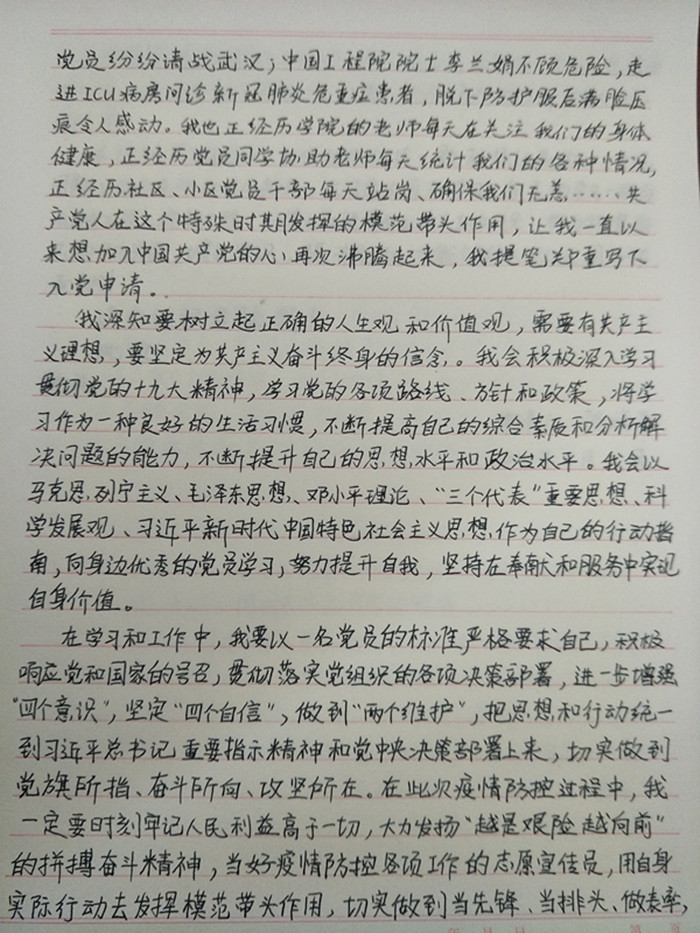 党员纷纷请战武汉；中国工程院院士李兰娟不顾危险，走
进ICU病房问诊新冠肺炎危重症患者，脱下防护服后满脸压
痕令人感动。我也正经历学院的老师每天在关注我们的身体
健康，正经历党员同学协助老师每天统计我们的各种情况，
正经历社区、小区党员干部每天站岗、确保我们无恙……共
产党人在这个特殊时期发挥的模范带头作用，让我一直以
来想加入中国共产党的心再次沸腾起来，我提笔郑重写下
入党申请。
我深知要树立起正确的人生观和价值观，需要有共产主
义理想，要坚定为共产主义奋斗终身的信念。我会积极深入学习
贯彻党的十九大精神，学习党的各项路线、方针和政策，将学
习作为一种良好的生活习惯，不断提高自己的综合素质和分析解
决问题的能力，不断提升自己的思想水平和政治水平。我会以
马克思列宁主义、毛泽东思想、邓小平理论、“三个代表”重要思想、科
学发展观、习近平新时代中国特色社会主义思想作为自己的行动指
南，向身边优秀的党员学习，努力提升自我，坚持在奉献和服务中实现
自身价值。
在学习和工作中，我要以一名党员的标准严格要求自己，积极
响应党和国家的号召，贯彻落实党组织的各项决策部署，进一步增强
“四个意识”，坚定“四个自信”，做到“两个维护”，把思想和行动统一
到习近平总书记重要指示精神和党中央决策部署上来，切实做到
党旗所指、奋斗所向、攻坚所在。在此次疫情防控过程中，我
一定要时刻牢记人民利益高于一切，大力发扬“越是艰险越向前”
的拼搏奋斗精神，当好疫情防控各项工作的志愿宣传员，用自身
实际行动去发挥模范带头作用，切实做到当先锋、当排头、做表率，